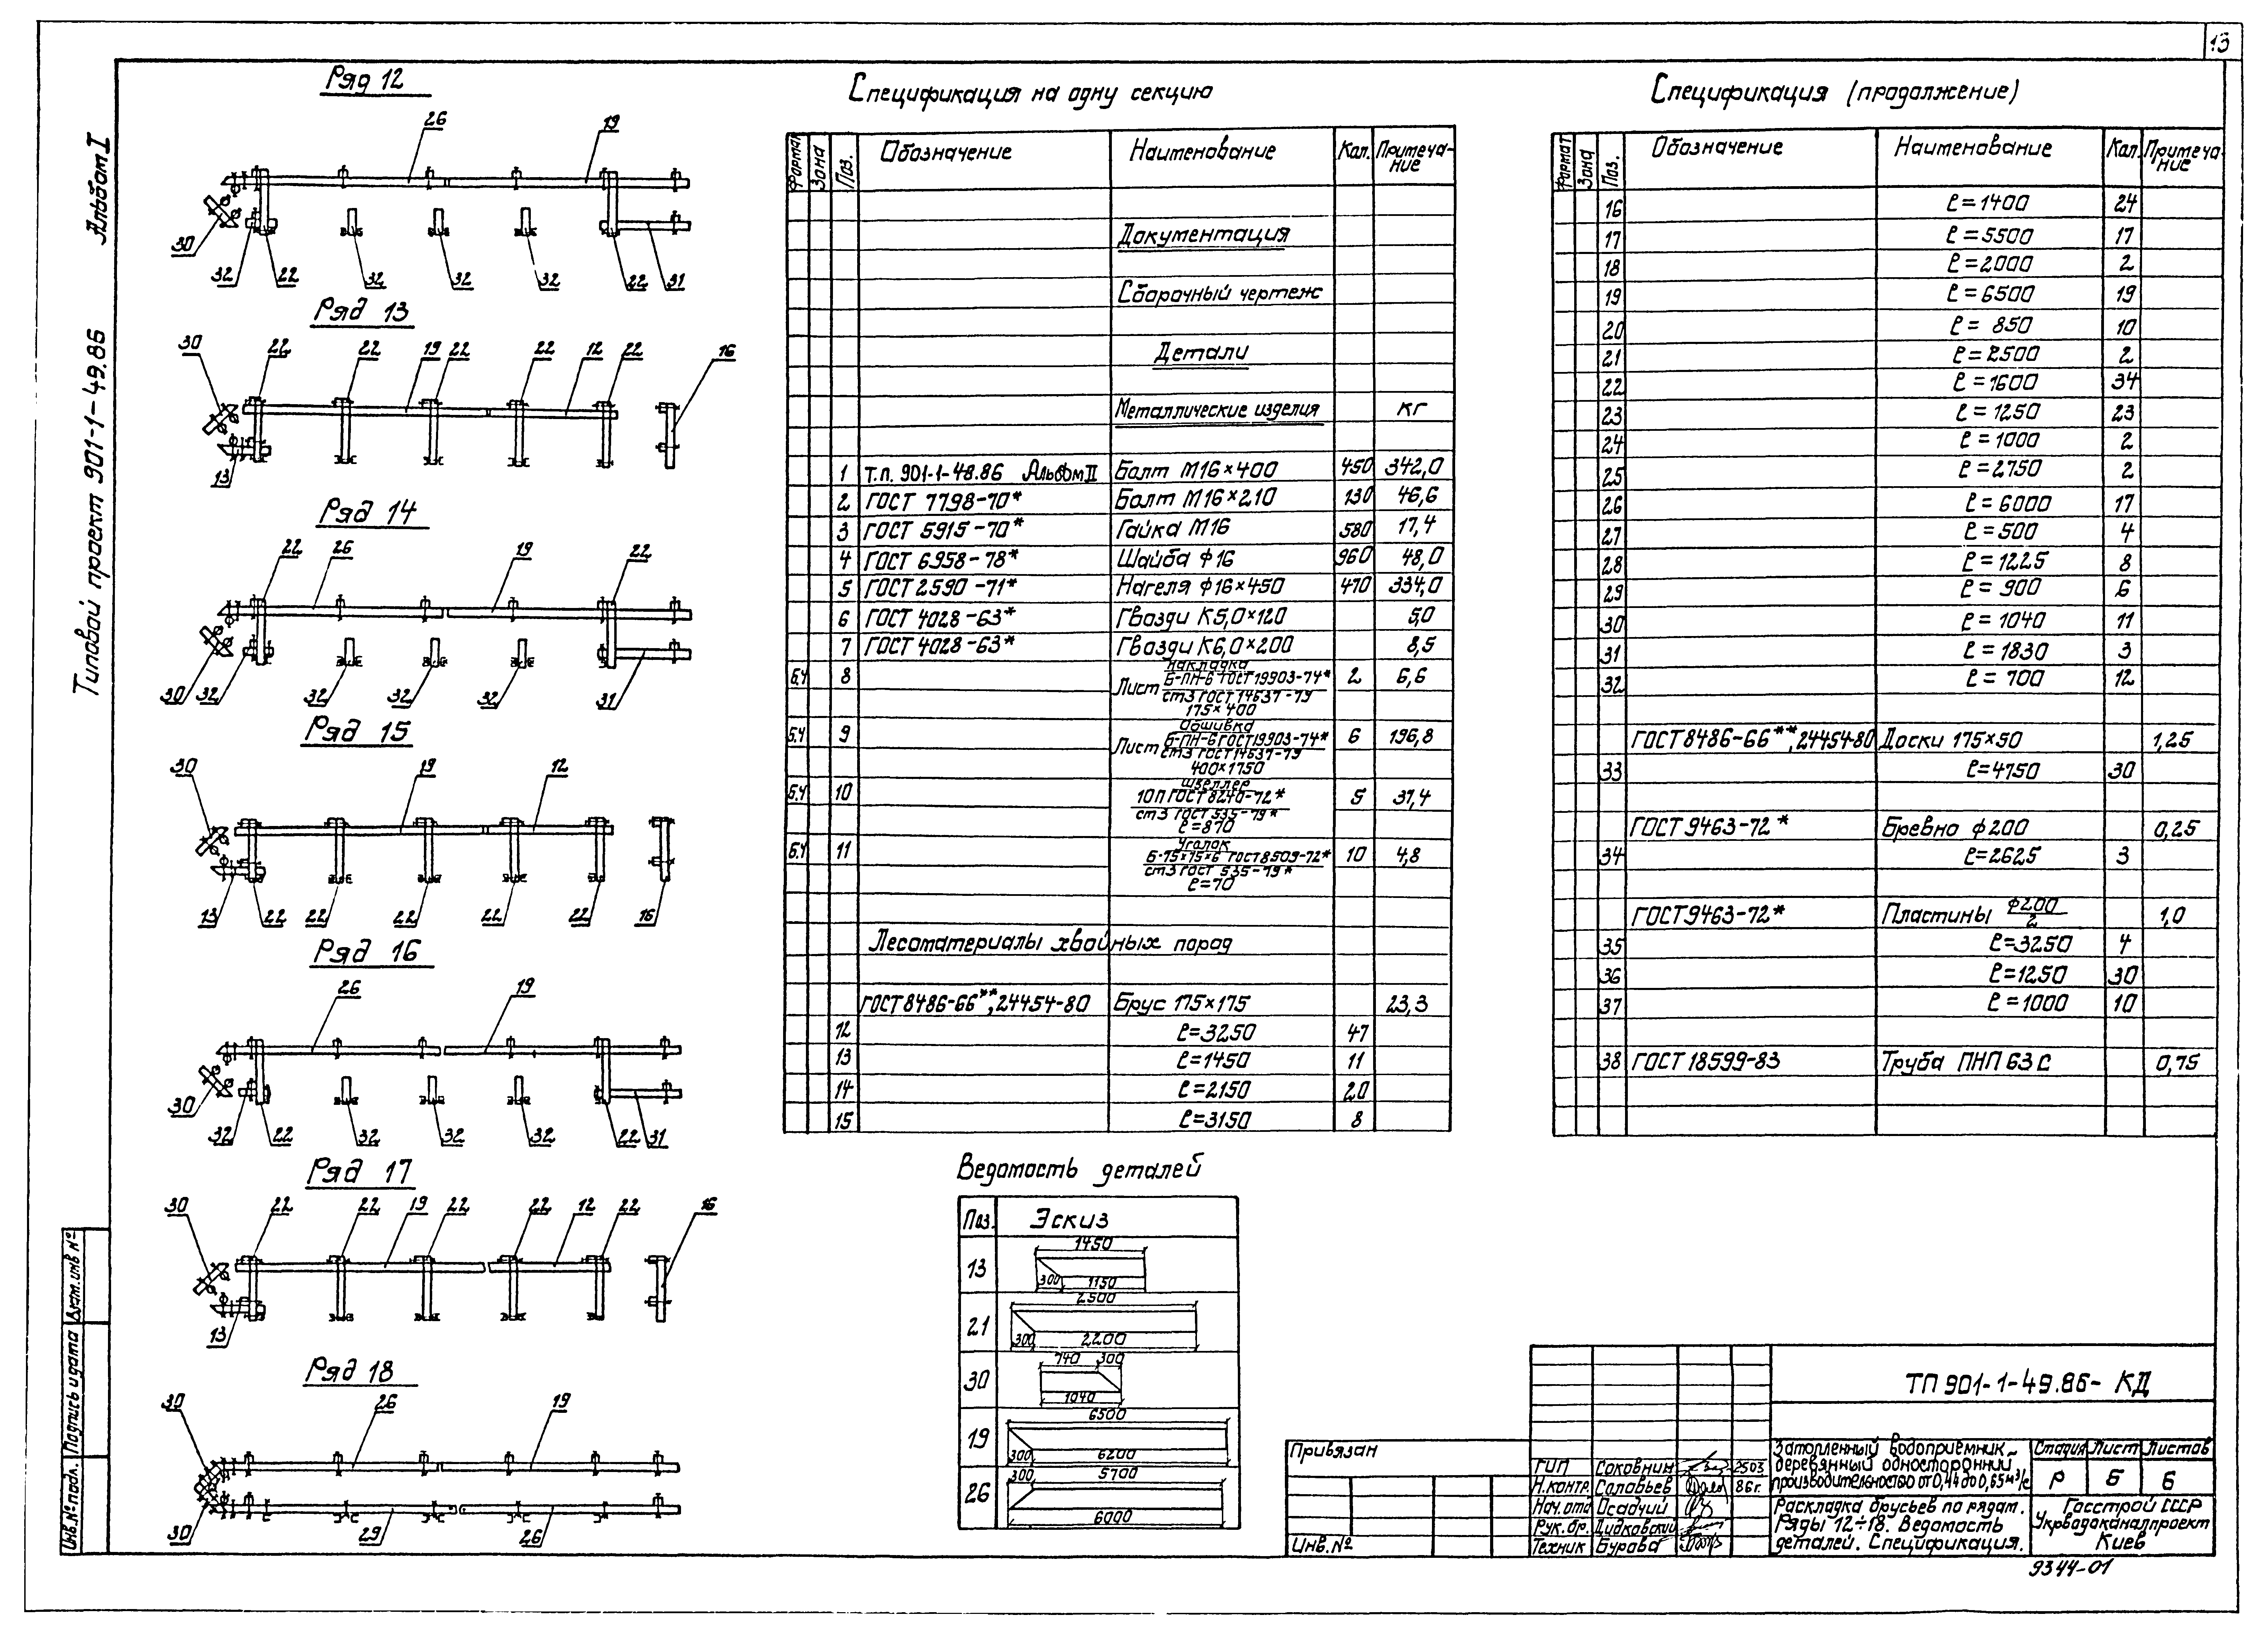 13
Альбом I
Типовой проект 901-1-49.86
Ряд 12
26 19
30 32 22 32 32 32 22 31
Ряд 13
30 22 22 19 22 22 12 22 16
13
Ряд 14
22 26 19 22
30 32 32 32 32 31
Ряд 15
30 19 12
13 22 22 22 22 22 16
Ряд 16
26 19
30 32 22 32 32 32 22 31
Ряд 17
30 22 22 19 22 22 12 22 16
13
Ряд 18
30 26 19
30 29 26
Спецификация на одну секцию
Формат Зона Поз. Обозначение Наименование Кол. Примеча-
ние
Документация
Сборочный чертеж
Детали
Металлические изделия кг
1 Т.п. 901-1-48.86 Альбом II Болт М16×400 450 342,0
2 ГОСТ 7798-70* Болт М16×210 130 46,6
3 ГОСТ 5915-70* Гайка М16 580 17,4
4 ГОСТ 6958-78* Шайба ф16 960 48,0
5 ГОСТ 2590-71* Нагеля ф16×450 470 334,0
6 ГОСТ 4028-63* Гвозди К5,0×120 5,0
7 ГОСТ 4028-63* Гвозди К6,0×200 8,5
Накладка
Б.Ч 8 Лист Б-ПН-6 ГОСТ 19903-74* 2 6,6
ст3 ГОСТ 14637-79
175×400
Обшивка
Б.Ч 9 Лист Б-ПН-6 ГОСТ 19903-74* 6 196,8
ст3 ГОСТ 14637-79
400×1750
Швеллер
Б.Ч 10 10П ГОСТ 8240-72* 5 37,4
ст3 ГОСТ 535-79*
ℓ=870
Уголок
Б.Ч 11 Б-75×75×6 ГОСТ 8509-72* 10 4,8
ст3 ГОСТ 535-79*
ℓ=70
Лесоматериалы хвойных пород
ГОСТ 8486-66**, 24454-80 Брус 175×175 23,3
12 ℓ=3250 47
13 ℓ=1450 11
14 ℓ=2150 20
15 ℓ=3150 8
Спецификация (продолжение)
Формат Зона Поз. Обозначение Наименование Кол. Примеча-
ние
16 ℓ=1400 24
17 ℓ=5500 17
18 ℓ=2000 2
19 ℓ=6500 19
20 ℓ= 850 10
21 ℓ=2500 2
22 ℓ=1600 34
23 ℓ=1250 23
24 ℓ=1000 2
25 ℓ=2750 2
26 ℓ=6000 17
27 ℓ=500 4
28 ℓ=1225 8
29 ℓ=900 6
30 ℓ=1040 11
31 ℓ=1830 3
32 ℓ=700 12
ГОСТ 8486-66**, 24454-80 Доски 175×50 1,25
33 ℓ=4750 30
ГОСТ 9463-72* Бревно ф200 0,25
34 ℓ=2625 3
ГОСТ 9463-72* Пластины ф200/2 1,0
35 ℓ=3250 4
36 ℓ=1250 30
37 ℓ=1000 10
38 ГОСТ 18599-83 Труба ПНП 63 С 0,75
Ведомость деталей
Поз. Эскиз
13 1450 300 1150
21 2500 300 2200
30 740 300 1040
19 6500 300 6200
26 300 5700 6000
Инв.№ подл. Подпись и дата Взам.инв №
Привязан
Инв.№
ТП 901-1-49.86- КД
ГИП Соковнин 2503
Н.контр. Соловьев 86г.
Нач.отд Осадчий
Рук.бр. Дидковский
Техник Бурова
Затопленный водоприемник
деревянный односторонний
производительностью от 0,44 до 0,65 м³/с
Стадия Лист Листов
Р 6 6
Раскладка брусьев по рядам.
Ряды 12÷18. Ведомость
деталей. Спецификация.
Госстрой СССР
Укрводоканалпроект
Киев
9344-01